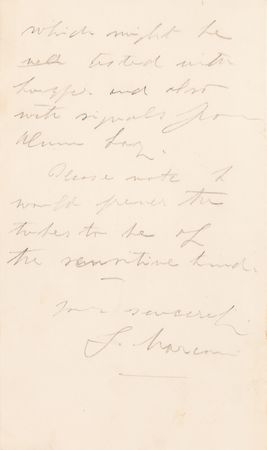 which might be
well tested with
and also
with signals from
Alum Bay.
Please note I
would prefer the
tubes to be of
the sensitive kind.
Yours sincerely
G. Marconi